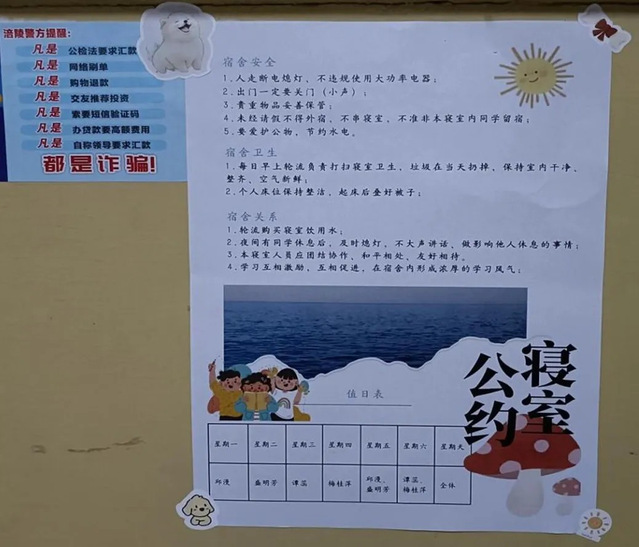 涪陵警方提醒:
凡是 公检法要求汇款
凡是 网络刷单
凡是 购物退款
凡是 交友推荐投资
凡是 索要短信验证码
凡是 办贷款要高额费用
凡是 自称领导要求汇款
都是诈骗!
宿舍安全
1.人走断电熄灯、不违规使用大功率电器;
2.出门一定要关门(小声);
3.贵重物品妥善保管;
4.未经请假不得外宿、不串寝室、不准非本寝室内同学留宿;
5.要爱护公物,节约水电。
宿舍卫生
1.每日早上轮流负责打扫寝室卫生、垃圾在当天扔掉、保持室内干净、
整齐、空气新鲜;
2.个人床位保持整洁,起床后叠好被子;
宿舍关系
1.轮流购买寝室饮用水;
2.夜间有同学休息后,及时熄灯、不大声讲话、做影响他人休息的事情;
3.本寝室人员应团结协作、和平相处、友好相待。
4.学习互相激励,互相促进,在宿舍内形成浓厚的学习风气;
寝室
公约
值日表
星期一 星期二 星期三 星期四 星期五 星期六 星期天
邱漫 盛明芳 谭蕊 梅桂萍 邱漫、盛明芳 谭蕊、梅桂萍 全体